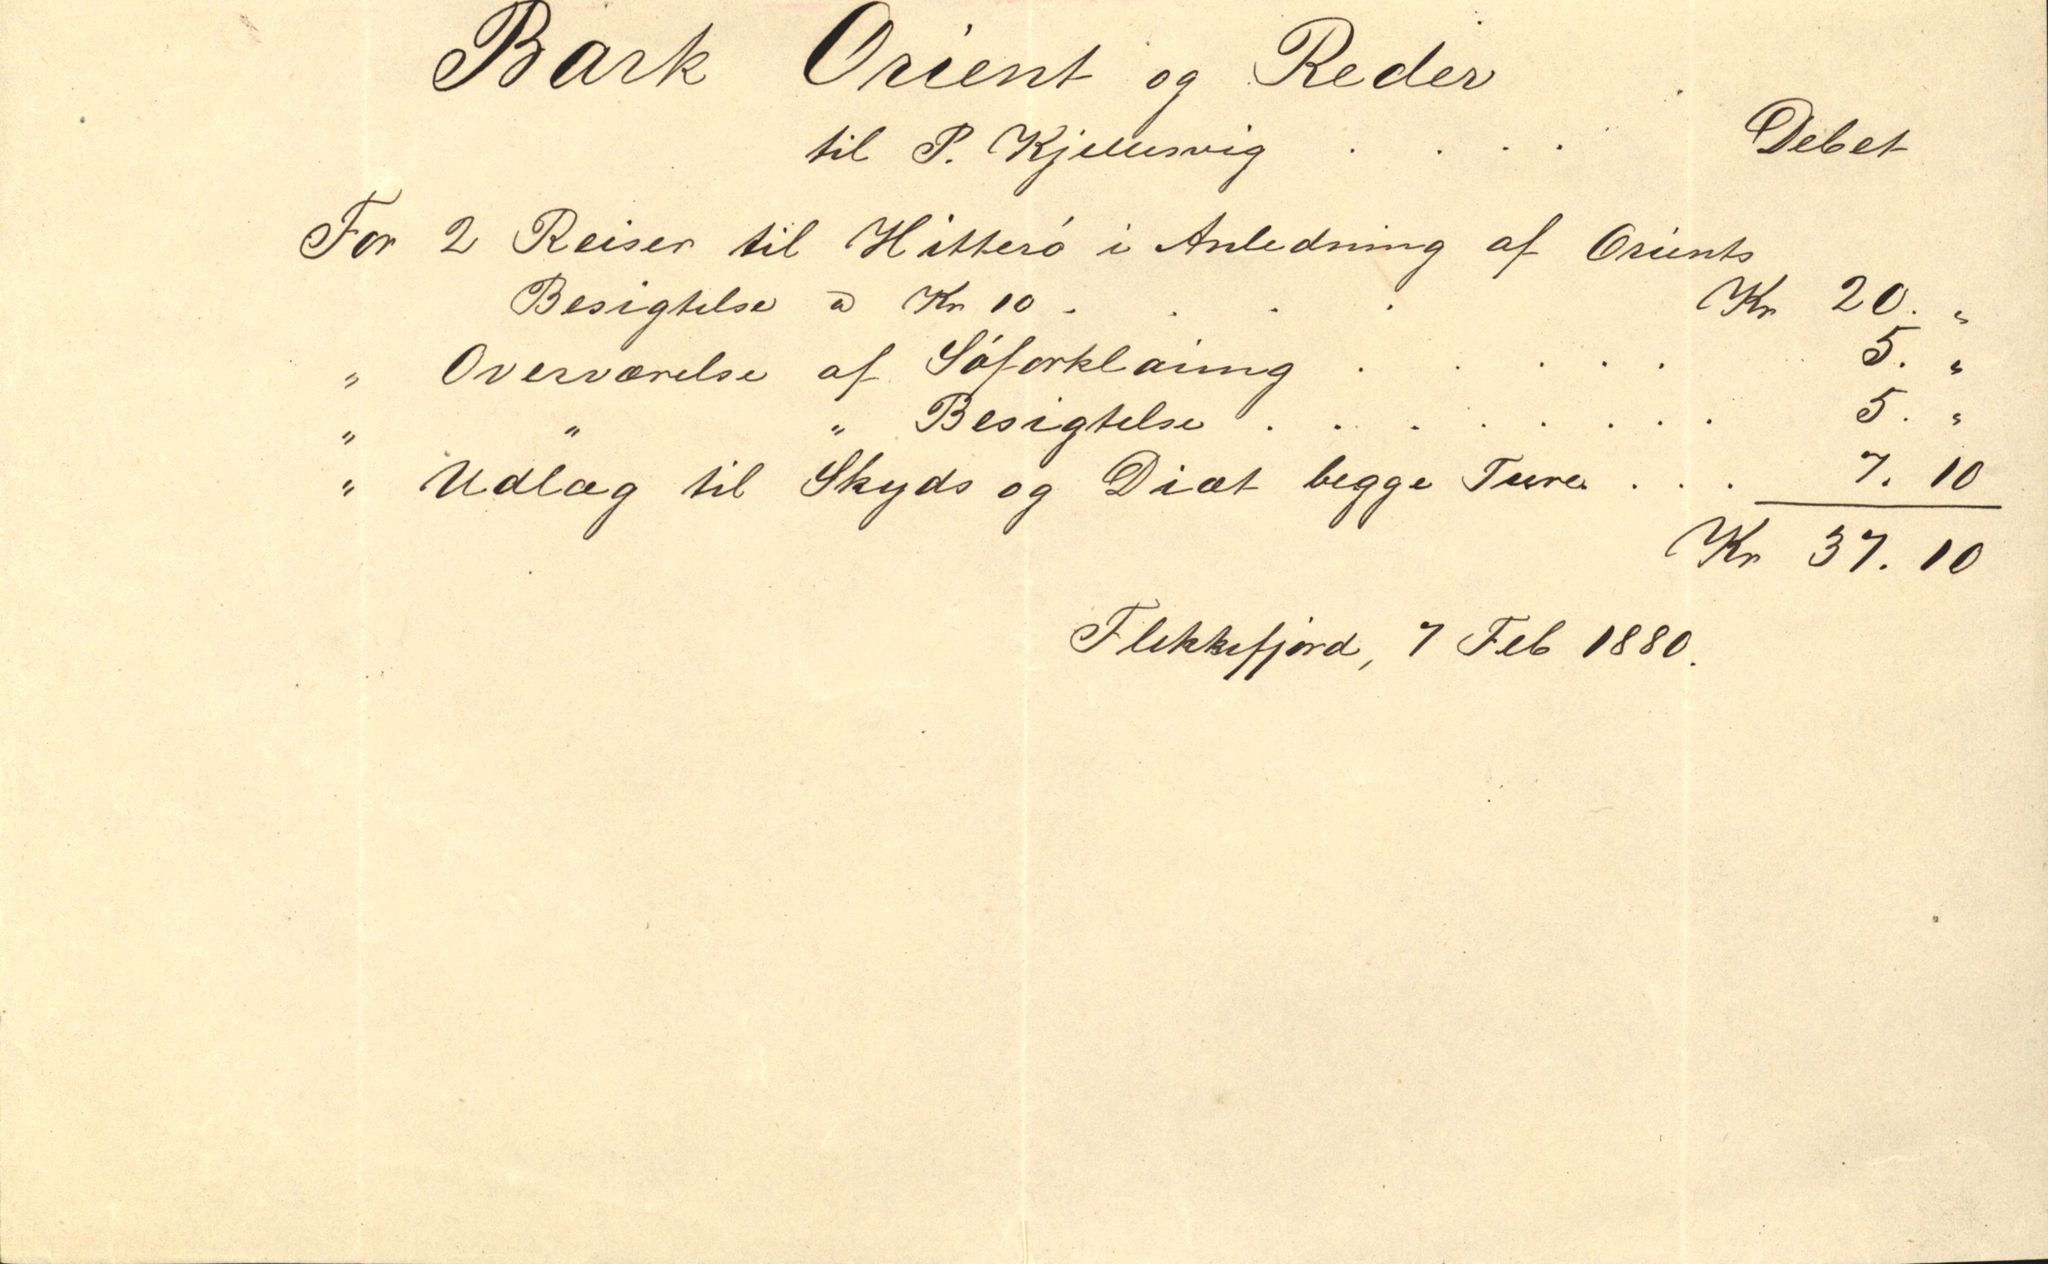 Bark Orient og Reder
til P. Kjellesvig . . . . Debet
For 2 Reiser til Hitterö i Anledning af Orients
Besigtelse a Kr 10 . . . . Kr 20. "
" Overværelse af Söforklaring . . . . . 5. "
" " " Besigtelse . . . . . . . . 5. "
" Udlæg til Skyds og Diæt begge Ture . . . 7. 10
Kr 37. 10
Flekkefjord, 7 Feb 1880.